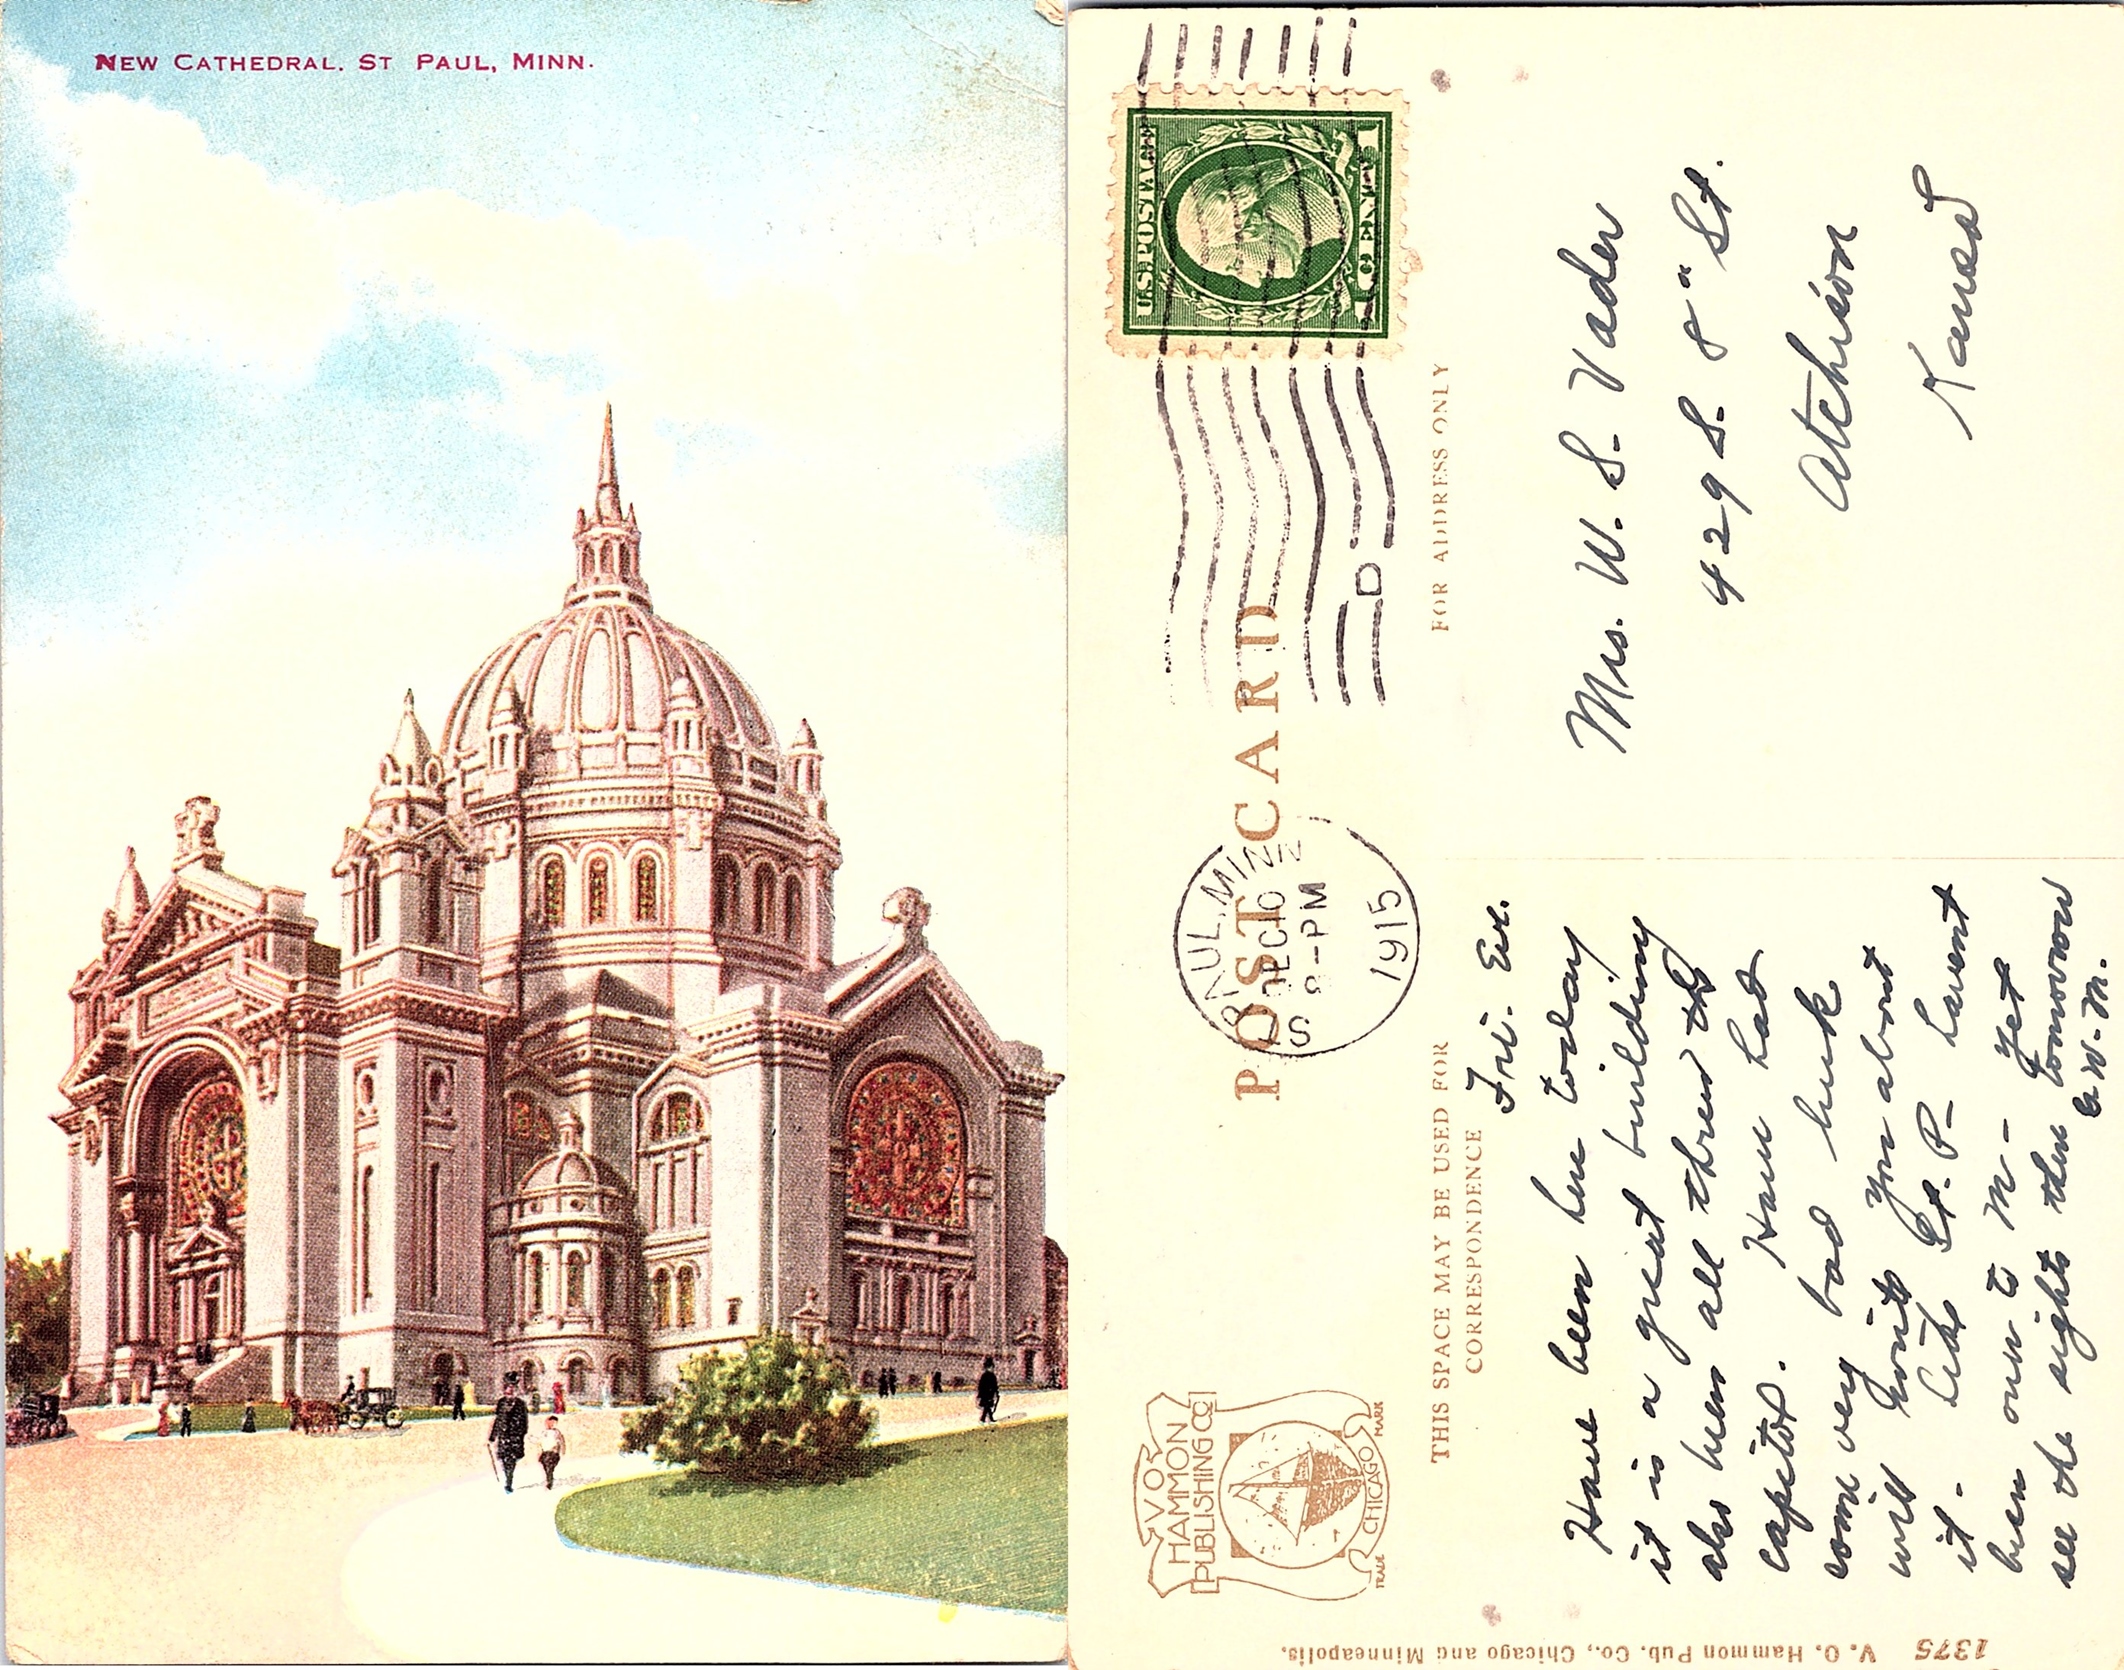 NEW CATHEDRAL. ST PAUL, MINN.
U.S. POSTAGE
1 CENT 1
POST CARD
PAUL. MINN
DEC 10
8-PM
1915
S
D
FOR ADDRESS ONLY
Mrs. W. S. Vader
429 S. 8" St.
Atchison
Kansas
V.O.
HAMMON
PUBLISHING CO
TRADE CHICAGO MARK
THIS SPACE MAY BE USED FOR
CORRESPONDENCE
Fri. Eve.
Have been here today
it is a great building
also been all through the
capitol. Have had
some very bad luck
will write you about
it - Like St. P- havent
been over to M- yet
see the sights then tomorrow
W. M.
1375 V. O. Hammon Pub. Co., Chicago and Minneapolis.